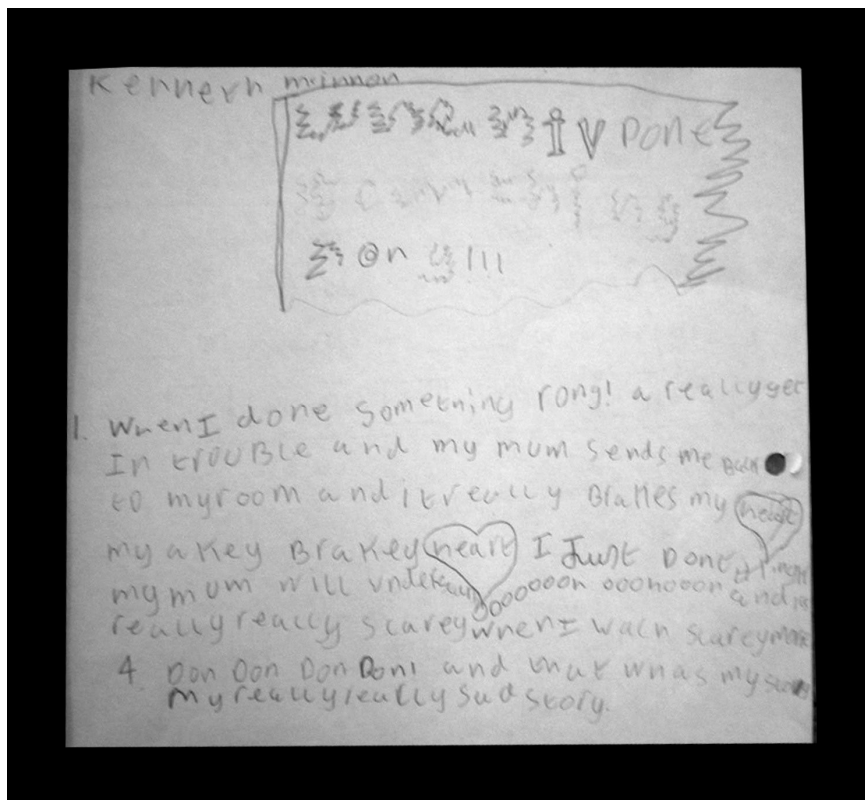 Kenneth mcinnon
I V DONE
@n !!!
1. When I done something rong! a really get
In trouBle and my mum sends me Back
to my room and it really Brakes my heart
my akey Brakey heart I Just Dont think
my mum will oooooon ooonooon and is
really really scarey when I wach scarey
4 Don Don Don Don! and that whas my
my really really sad story.